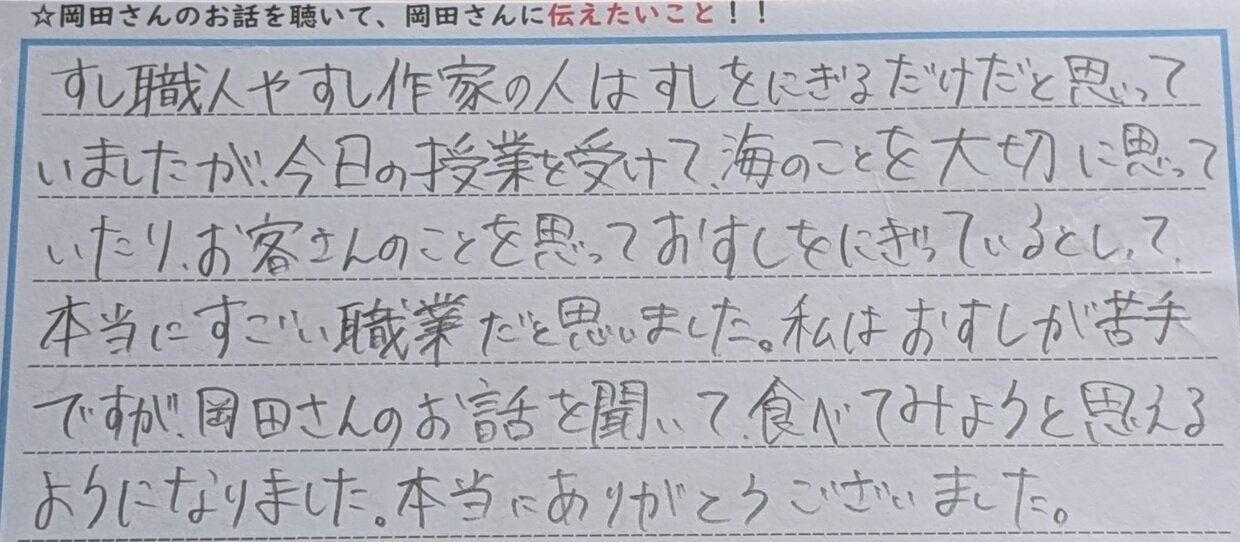 ☆岡田さんのお話を聴いて、岡田さんに伝えたいこと！！
すし職人やすし作家の人はすしをにぎるだけだと思って
いましたが、今日の授業を受けて、海のことを大切に思って
いたり、お客さんのことを思っておすしをにぎっているとしって、
本当にすごい職業だと思いました。私はおすしが苦手
ですが、岡田さんのお話を聞いて、食べてみようと思える
ようになりました。本当にありがとうございました。